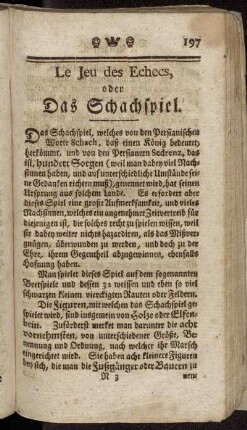 197
Le Jeu des Echecs,
oder
Das Schachspiel.
Das Schachspiel, welches von den Persianischen
Worte Schach, daß einen König bedeutet,
herkömmt, und von den Persianern Sedrenz, das
ist, hundert Sorgen (weil man dabey viel Nach-
sinnen haben, und auf unterschiedliche Umstände sei-
ne Gedanken richten muß), genennet wird, hat seinen
Ursprung aus solchem Lande. Es erfordert aber
dieses Spiel eine große Aufmerksamkeit, und vieles
Nachsinnen, welches ein angenehmer Zeitvertreib für
diejenigen ist, die solches recht zu spielen wissen, weil
sie dabey weiter nichts hazardiren, als das Misver-
gnügen, überwunden zu werden, und doch zu der
Ehre, ihrem Gegentheil abzugewinnen, ebenfalls
Hofnung haben.
Man spielet dieses Spiel auf dem sogenannten
Bretspiele und dessen 32 weissen und eben so viel
schwarzen kleinen viereckigten Rauten oder Feldern.
Die Figuren, mit welchen das Schachspiel ge-
spielet wird, sind insgemein von Holze oder Elfen-
bein. Zuförderst merket man darunter die acht
vornehmsten, von unterschiedener Größe, Be-
nennung und Ordnung, nach welcher ihr Marsch
eingerichtet wird. Sie haben acht kleinere Figuren
bey sich, die man die Fußgänger oder Bauern zu
N 3